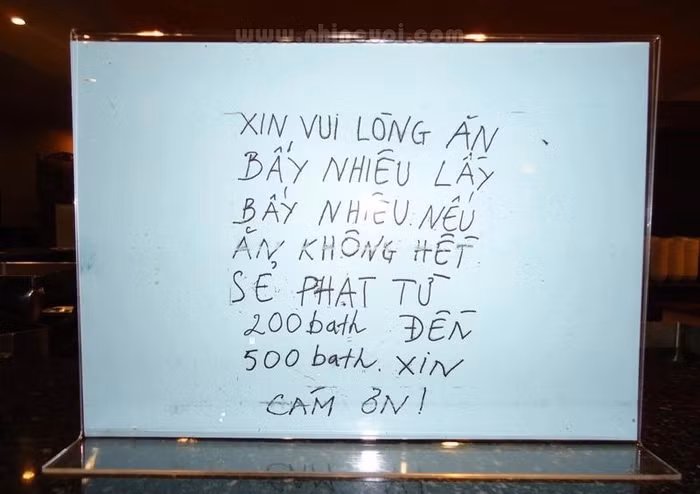 www.nhincuoi.com
XIN VUI LÒNG ĂN
BẤY NHIÊU LẤY
BẤY NHIÊU. NẾU
ĂN KHÔNG HẾT
SẼ PHẠT TỪ
200 bath ĐẾN
500 bath. XIN
CÁM ƠN!